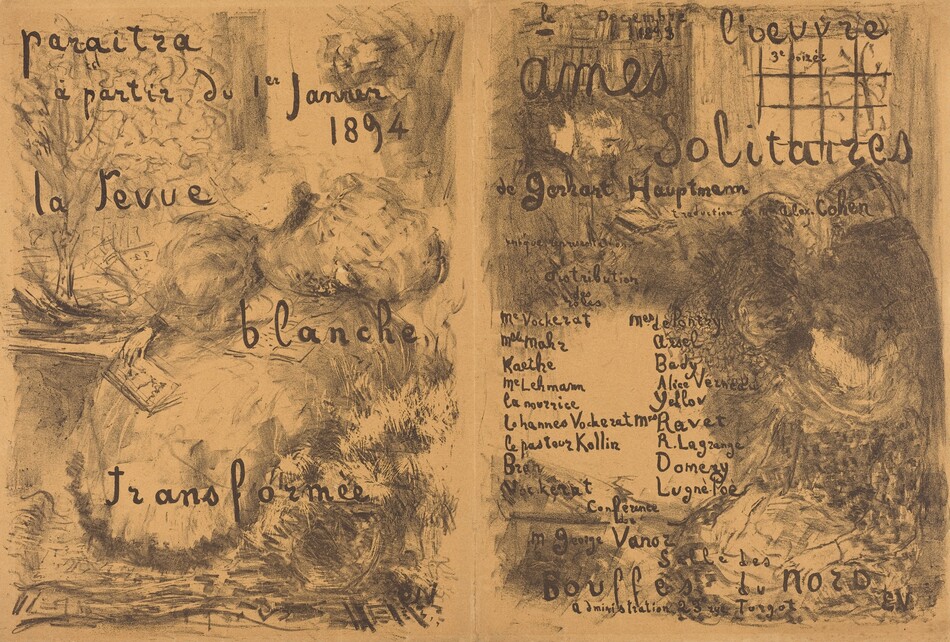 paraitra
à partir du 1er Janvier
1894
la revue
blanche
transformée
EV
le Decembre
1893
l'oeuvre
3e soirée
ames
Solitaires
de Gerhart Hauptmann
traduction de Alex. Cohen
unique représentation
distribution
des
roles
Me Vockerat Mes de Pontry
Mlle Mahr
Kaethe Bady
Me Lehmann Alice Vernet
la nourrice
Iohannes Vockerat Mrs Ravet
le pasteur Kollin R. Lagrange
Bran Domezy
Vockerat Lugné Poe
Conférence
de
M George Vanor
Salle des
Bouffes du nord
administration 23 rue Turgot
EV